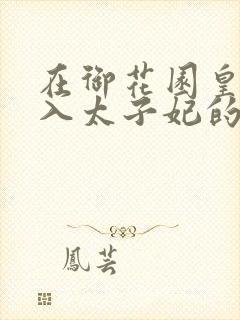 在御花园皇
入太子妃的
鳳芸